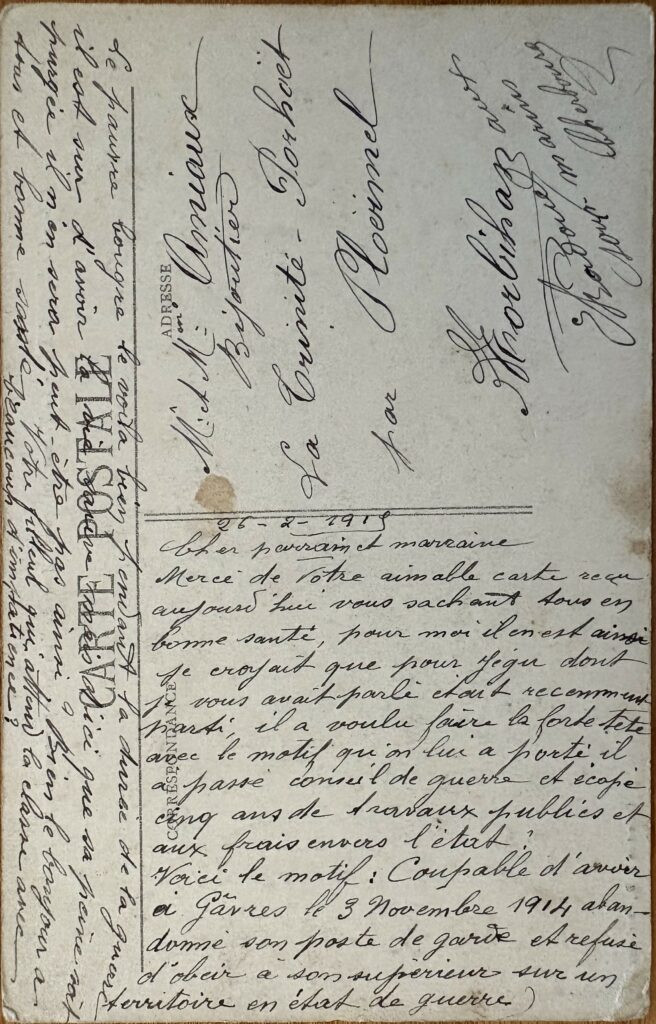 CARTE POSTALE
CORRESPONDANCE
ADRESSE
26-2-1915
Cher parrain et marraine
Merci de Votre aimable carte reçu
aujourd'hui vous sachant tous en
bonne santé, pour moi il en est ainsi
je croyait que pour Jégu dont
je vous avait parlé était recemment
parti, il a voulu faire la forte tete
avec le motif qu'on lui a porté il
a passé conseil de guerre et écopé
cinq ans de travaux publics et
aux frais envers l'état!
Voici le motif: Coupable d'avoir
à Gâvres le 3 Novembre 1914 aban-
donné son poste de garde et refusé
d'obeir à son supérieur sur un
territoire en état de guerre)
Le pauvre bougre le voilà bien pendant la durée de la guerre
il est sur d'avoir la vie sauve mais d'ici que sa peine soit
purgée il n'en sera peut-être pas ainsi? Bien le bonjour a
tous et bonne santé, Votre filleul qui attend la classe avec
beaucoup d'impatience?
M. et Mme Amiaux
Bijoutier
La Trinité-Porhoët
par Ploërmel
Morbihan